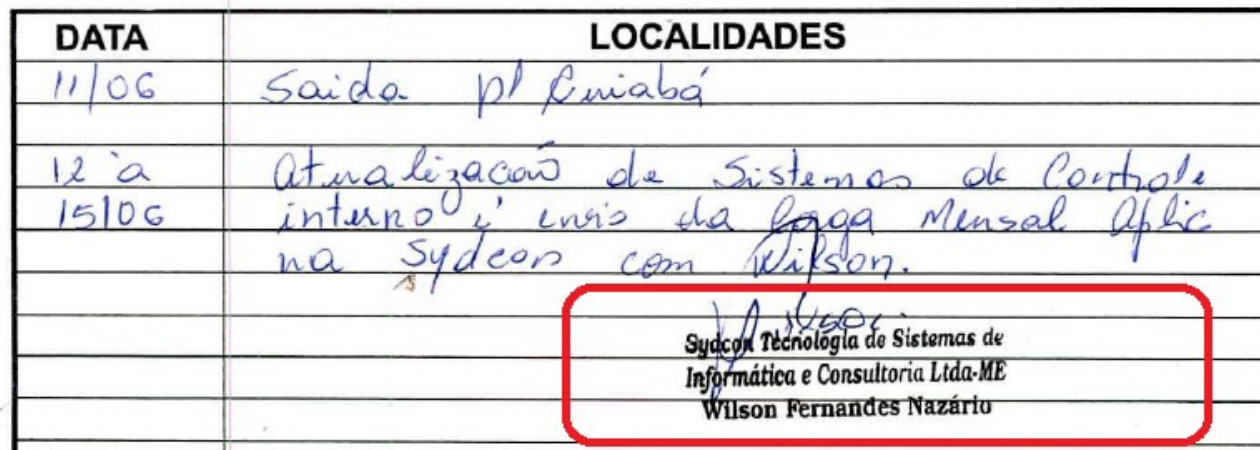 DATA LOCALIDADES
11/06 Saida p/ Cuiabá
12 à Atualização de Sistemas de Controle
15/06 interno e envio da Carga Mensal Aplic
na Sydcon com Wilson.
Wilson
Sydcon Tecnologia de Sistemas de
Informática e Consultoria Ltda-ME
Wilson Fernandes Nazário